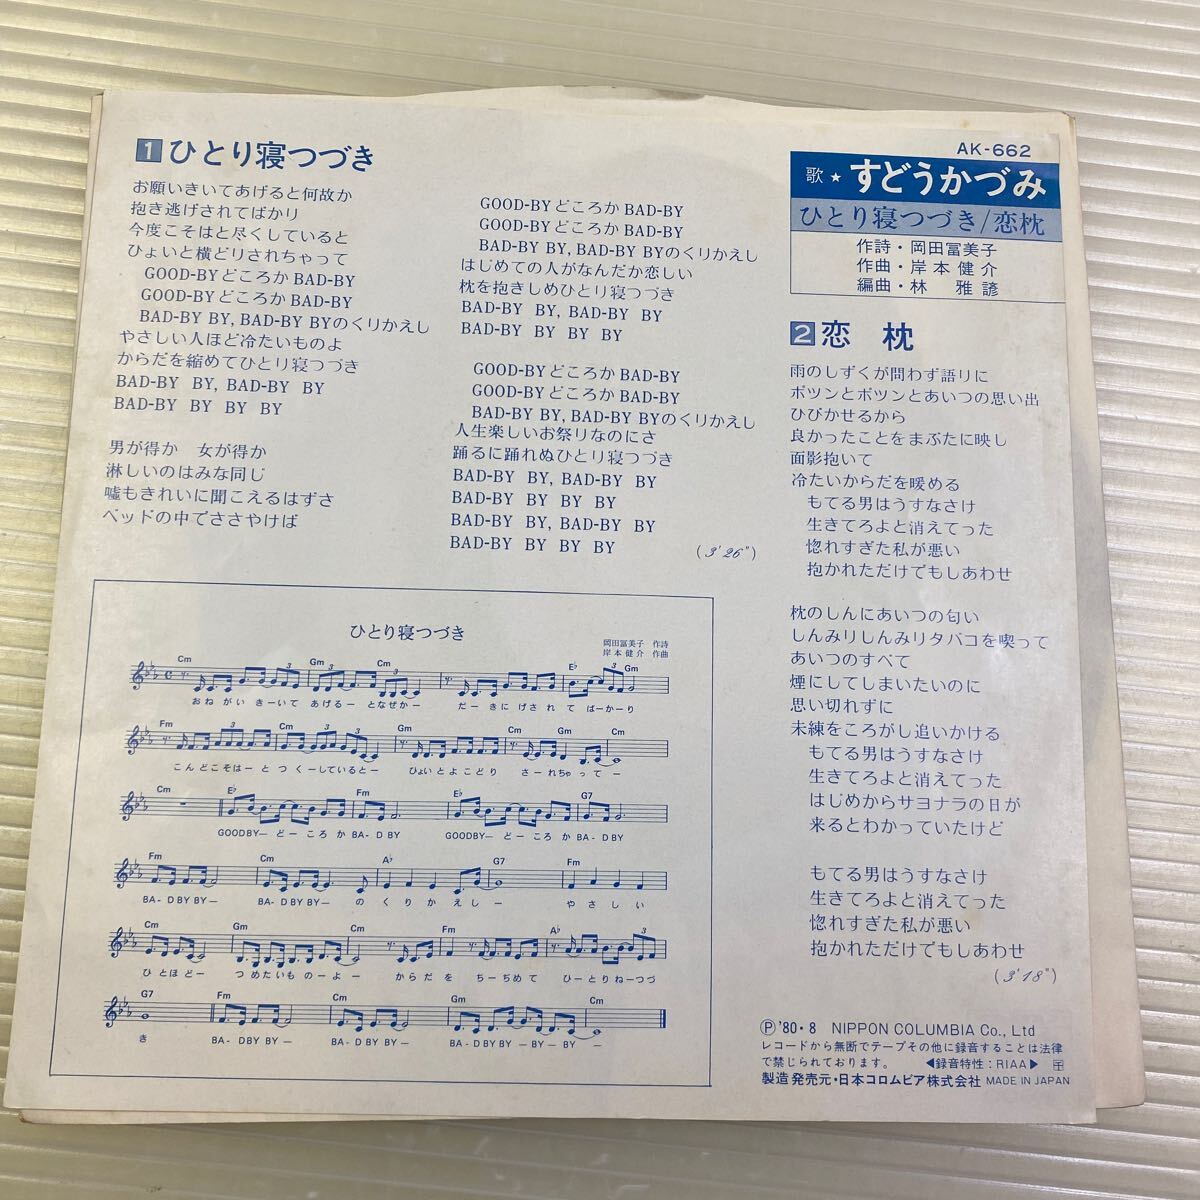 AK-662
歌★すどうかづみ
ひとり寝つづき/恋枕
作詩・岡田冨美子
作曲・岸本健介
編曲・林 雅諺
1 ひとり寝つづき
お願いきいてあげると何故か
抱き逃げされてばかり
今度こそはと尽くしていると
ひょいと横どりされちゃって
GOOD-BYどころかBAD-BY
GOOD-BYどころかBAD-BY
BAD-BY BY, BAD-BY BYのくりかえし
やさしい人ほど冷たいものよ
からだを縮めてひとり寝つづき
BAD-BY BY, BAD-BY BY
BAD-BY BY BY BY
男が得か 女が得か
淋しいのはみな同じ
嘘もきれいに聞こえるはずさ
ベッドの中でささやけば
GOOD-BYどころかBAD-BY
GOOD-BYどころかBAD-BY
BAD-BY BY, BAD-BY BYのくりかえし
はじめての人がなんだか恋しい
枕を抱きしめひとり寝つづき
BAD-BY BY, BAD-BY BY
BAD-BY BY BY BY
GOOD-BYどころかBAD-BY
GOOD-BYどころかBAD-BY
BAD-BY BY, BAD-BY BYのくりかえし
人生楽しいお祭りなのにさ
踊るに踊れぬひとり寝つづき
BAD-BY BY, BAD-BY BY
BAD-BY BY BY BY
BAD-BY BY, BAD-BY BY
BAD-BY BY BY BY
(3'26")
2 恋枕
雨のしずくが問わず語りに
ポツンとポツンとあいつの思い出
ひびかせるから
良かったことをまぶたに映し
面影抱いて
冷たいからだを暖める
もてる男はうすなさけ
生きてろよと消えてった
惚れすぎた私が悪い
抱かれただけでもしあわせ
枕のしんにあいつの匂い
しんみりしんみりタバコを喫って
あいつのすべて
煙にしてしまいたいのに
思い切れずに
未練をころがし追いかける
もてる男はうすなさけ
生きてろよと消えてった
はじめからサヨナラの日が
来るとわかっていたけど
もてる男はうすなさけ
生きてろよと消えてった
惚れすぎた私が悪い
抱かれただけでもしあわせ
(3'18")
ひとり寝つづき
岡田冨美子 作詩
岸本健介 作曲
Cm Gm Cm E♭ Gm
おねがい きーいて あげるー となぜかー だーきにげされて ばーかーり
Fm Cm Gm Cm Gm Cm
こんどこそはーと つくーしているとー ひょいとよこどり さーれちゃってー
Cm E♭ Fm E♭ G7
GOODBYー どーころか BAーD BY GOODBYー どーころか BAーD BY
Fm Cm A♭ G7 Fm
BAーD BY BYー BAーD BY BYー のくりかえしー やさしい
Cm Gm Cm Fm A♭
ひとほどー つめたいものーよー からだを ちーぢめて ひーとりねーつづ
G7 Fm Cm Gm Cm
き BAーD BY BYー BAーD BY BYー BAーD BY BYーBYーBYー
Ⓟ'80・8 NIPPON COLUMBIA Co., Ltd
レコードから無断でテープその他に録音することは法律
で禁じられております。 ◀録音特性:RIAA▶
製造発売元・日本コロムビア株式会社 MADE IN JAPAN